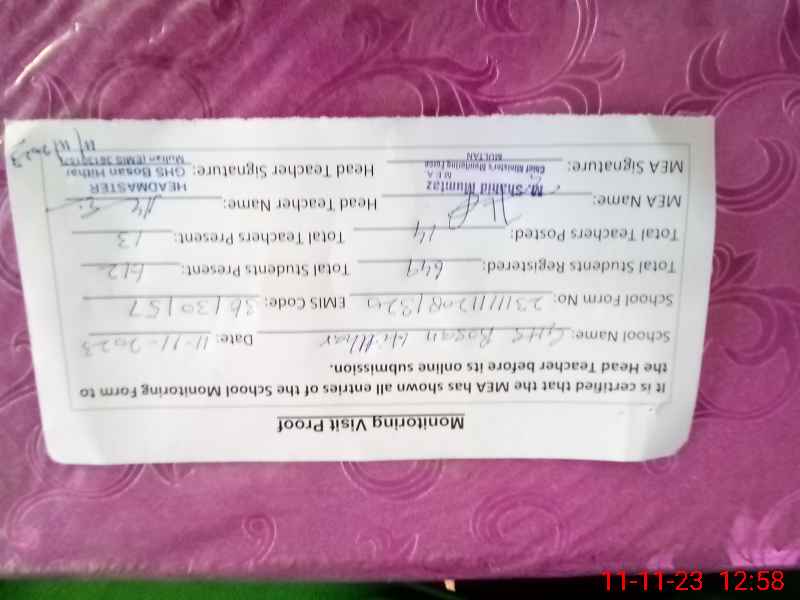 Monitoring Visit Proof
It is certified that the MEA has shown all entries of the School Monitoring Form to
the Head Teacher before its online submission.
School Name: GHS Bosan Hitthar Date: 11-11-2023
School Form No: EMIS Code: 36130157
Total Students Registered: 649 Total Students Present: 612
Total Teachers Posted: 14 Total Teachers Present: 13
MEA Name: Head Teacher Name:
MEA Signature: Head Teacher Signature:
M. Shahid Mumtaz
M.E.A
Chief Minister's Monitoring Force
MULTAN
HEADMASTER
GHS Bosan Hithar
Multan (EMIS 36130157)
11/11/2023
11-11-23 12:58